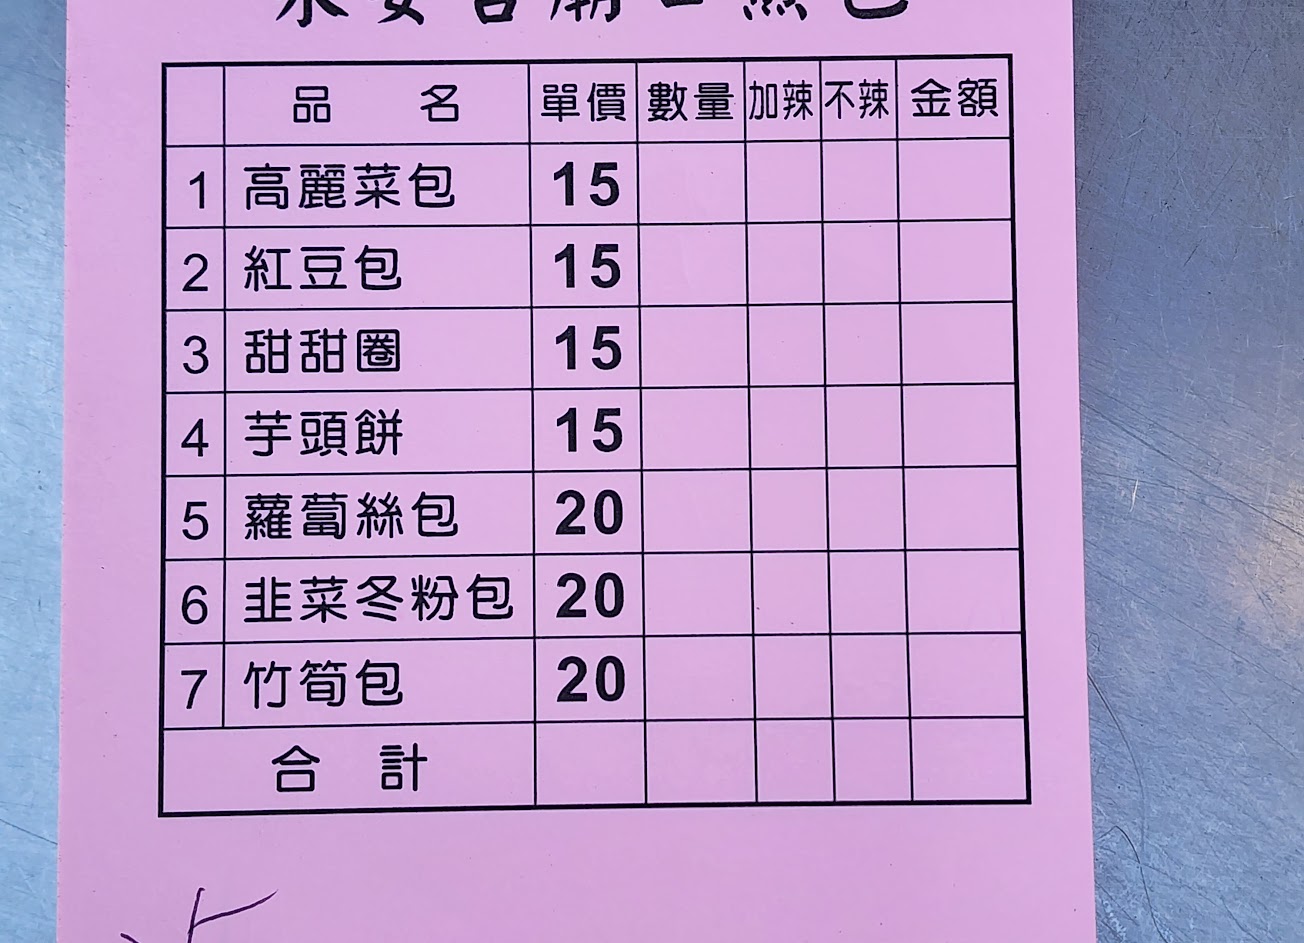 品 名 單價 數量 加辣 不辣 金額
1 高麗菜包 15
2 紅豆包 15
3 甜甜圈 15
4 芋頭餅 15
5 蘿蔔絲包 20
6 韭菜冬粉包 20
7 竹筍包 20
合 計